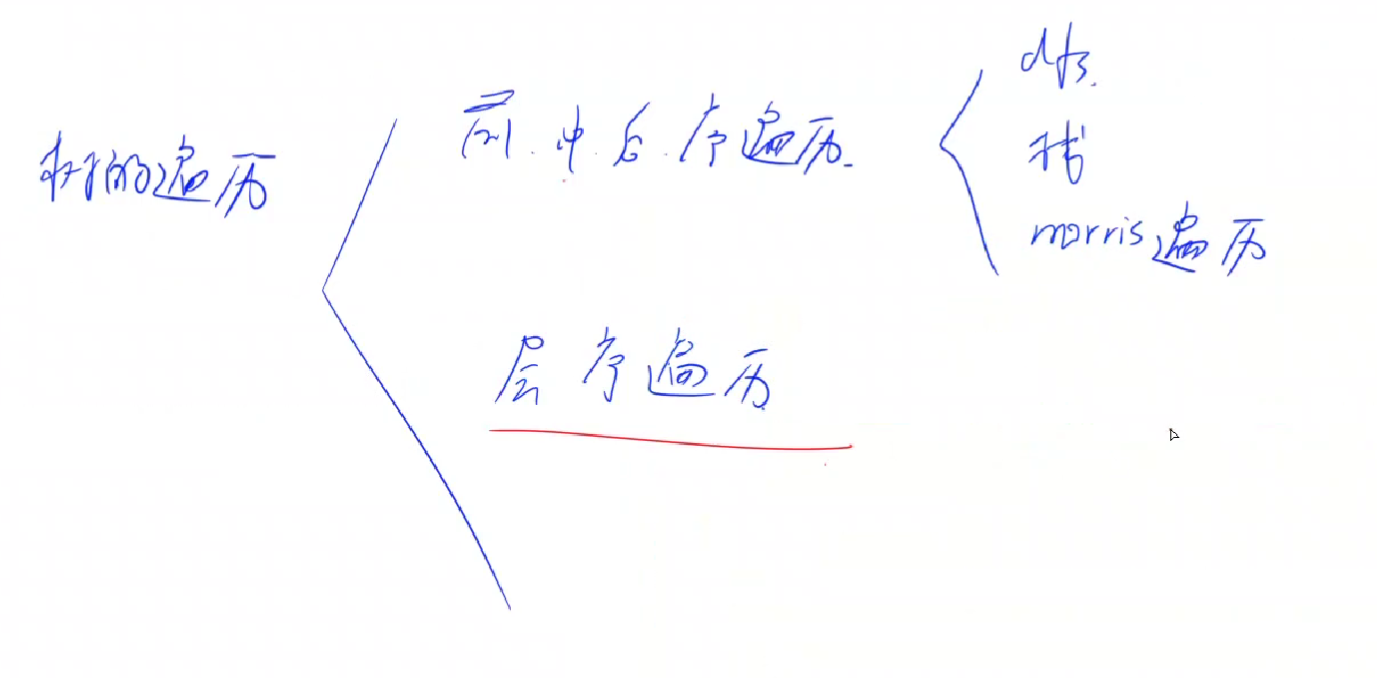 树的遍历
前.中.后.序遍历.
dfs.
栈
morris遍历
层序遍历